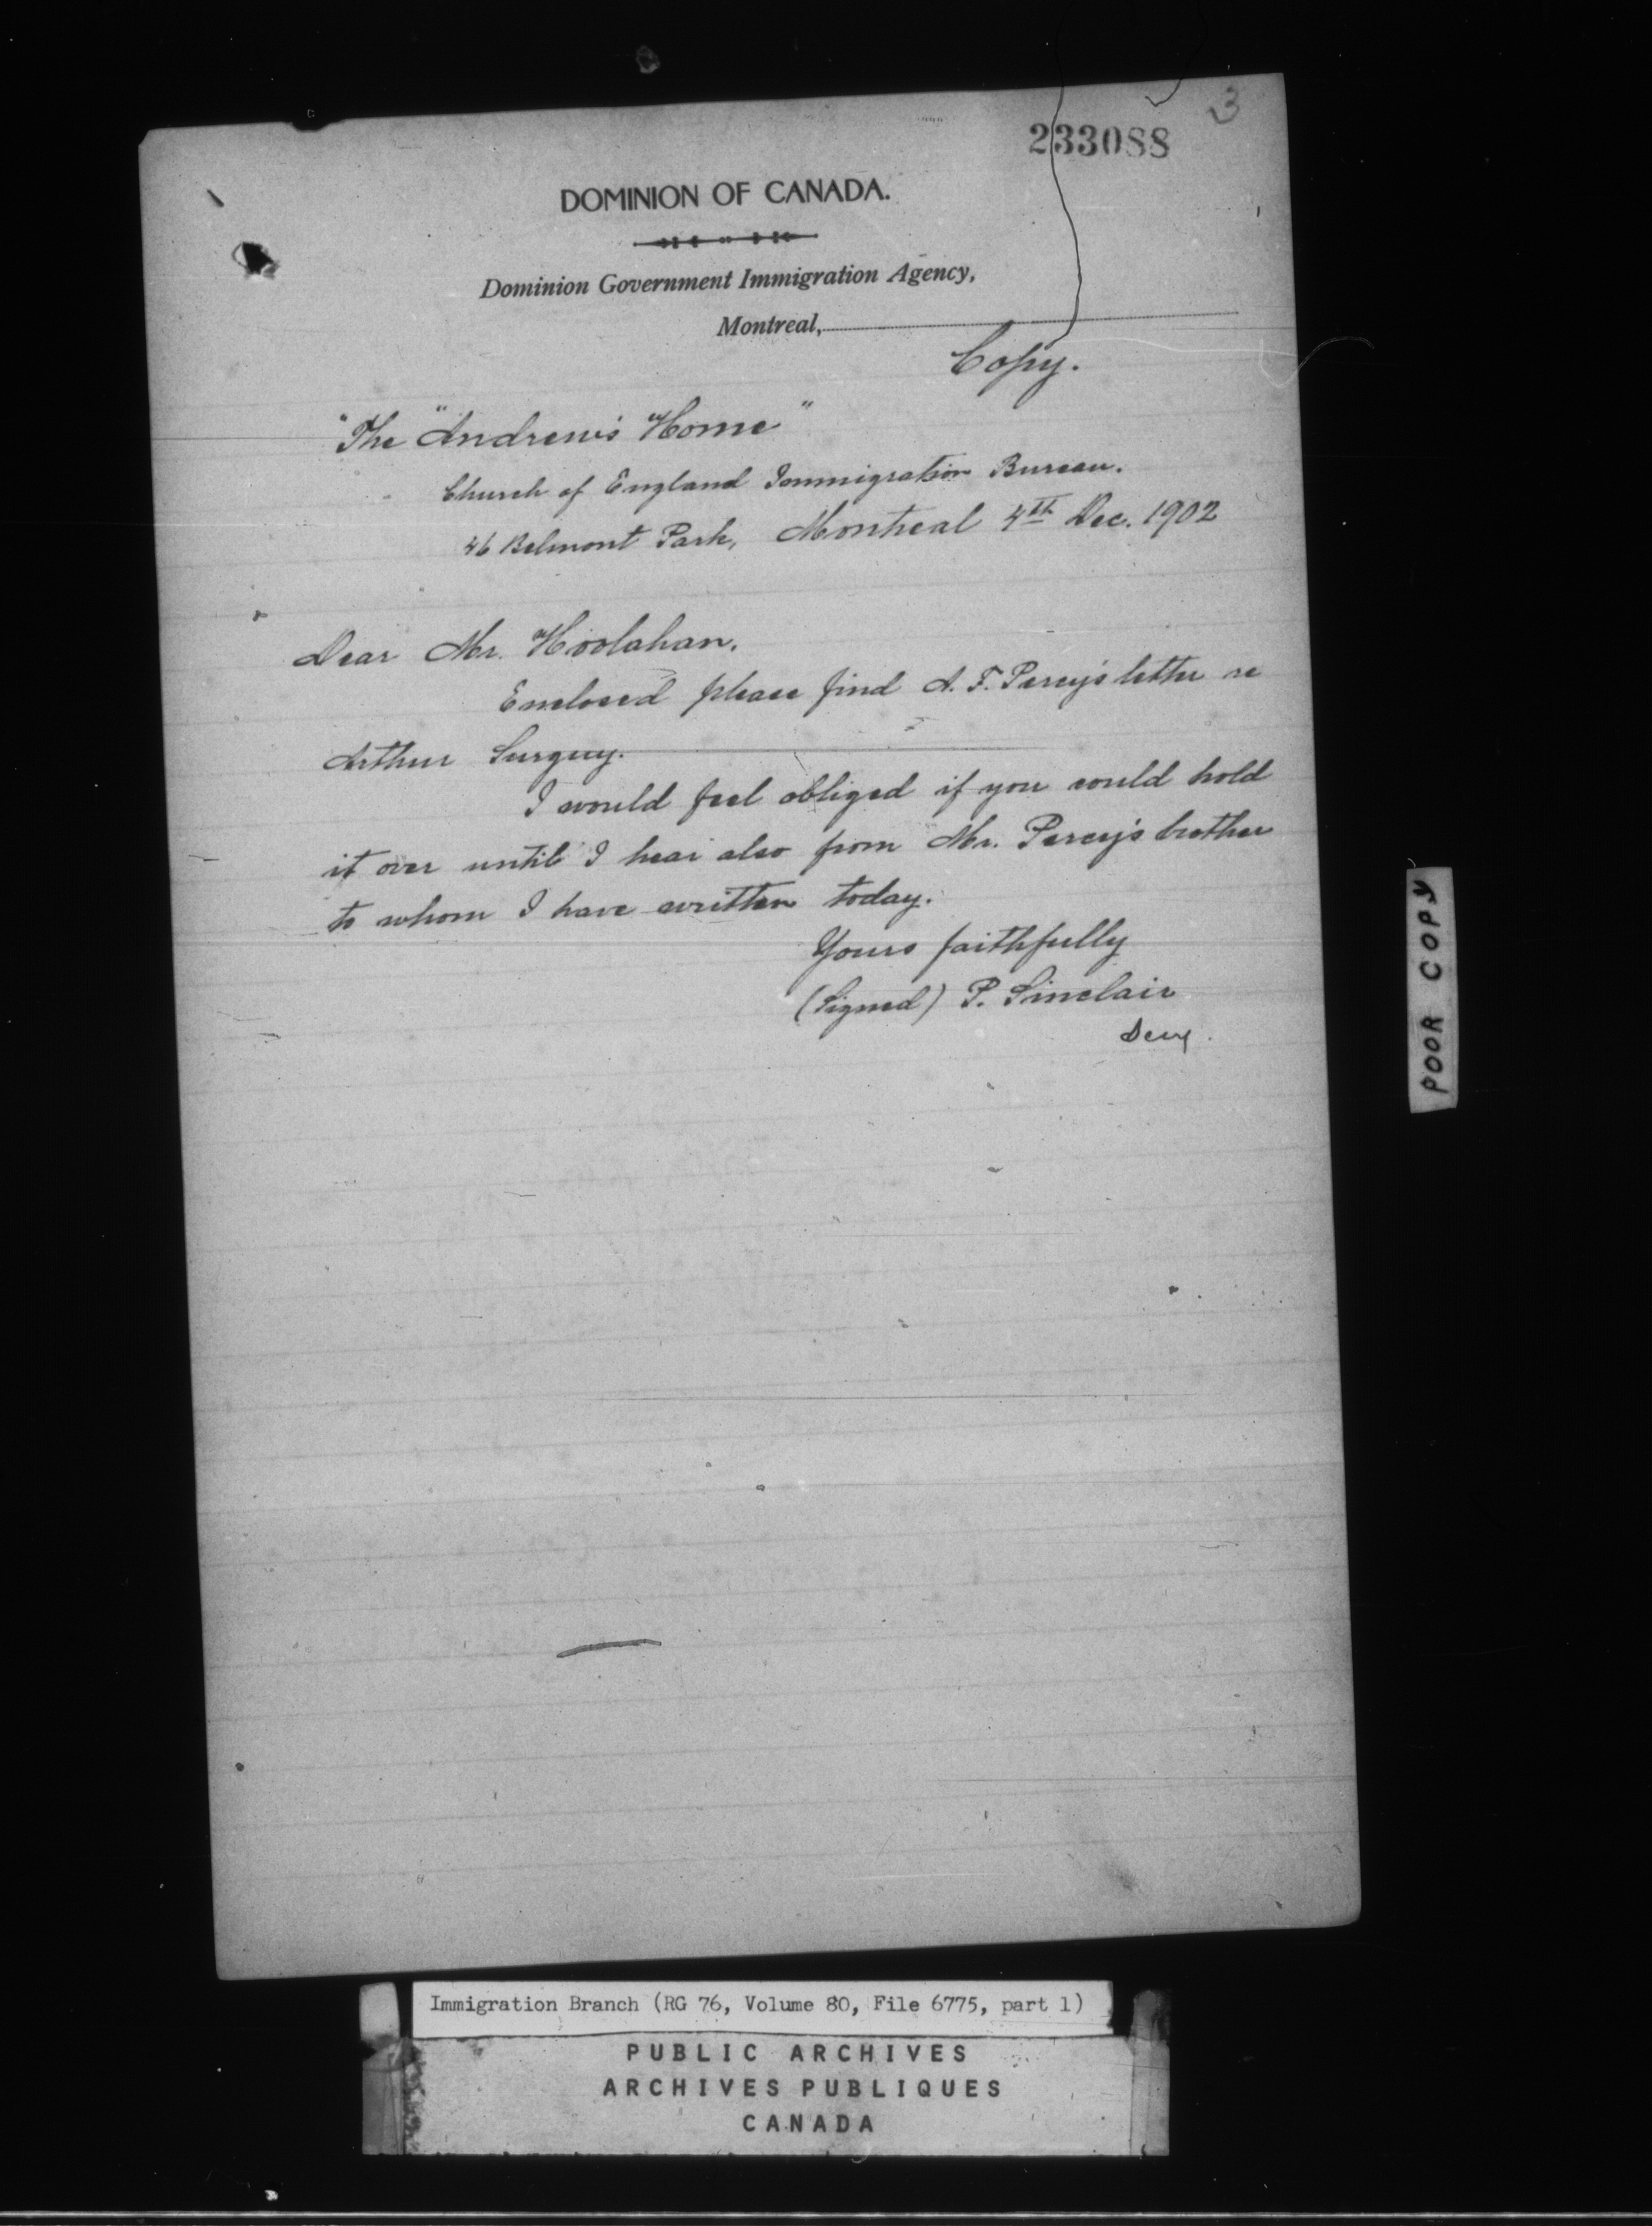 3
233088
DOMINION OF CANADA.
Dominion Government Immigration Agency,
Montreal,
Copy.
"The "Andrew's Home"
Church of England Immigration Bureau.
46 Belmont Park, Montreal 4th Dec. 1902
Dear Mr. Hoolahan,
Enclosed please find A. F. Percy's letter re
Arthur Surguy.
I would feel obliged if you could hold
it over until I hear also from Mr. Percy's brother
to whom I have written today.
Yours faithfully
(Signed) P. Sinclair
POOR COPY
Immigration Branch (RG 76, Volume 80, File 6775, part 1)
PUBLIC ARCHIVES
ARCHIVES PUBLIQUES
CANADA